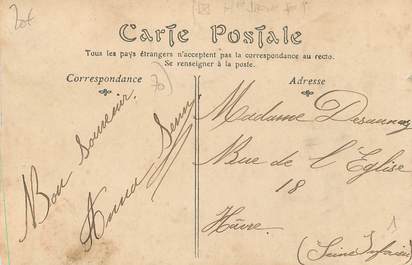 20€
Carte Postale
Tous les pays étrangers n'acceptent pas la correspondance au recto.
Se renseigner à la poste.
Correspondance
Adresse
Bon souvenir.
Anna
Madame
Rue de l'Eglise
18
Hâvre
(Seine Inférieure)